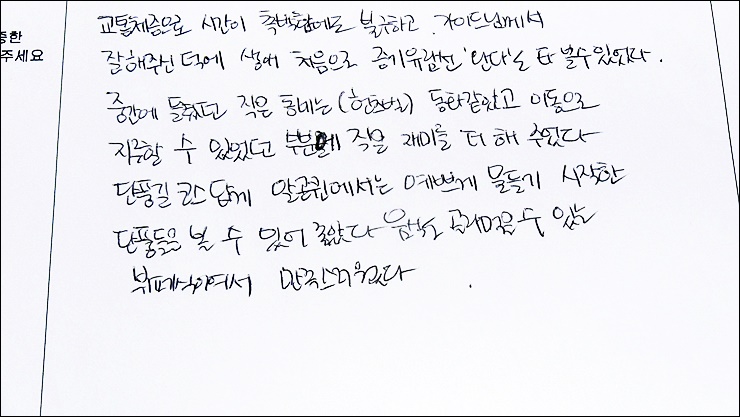 중한
주세요
교통체증으로 시간이 촉박함에도 불구하고 가이드님께서
잘해주신 덕에 생애 처음으로 증기유람선 '란다'를 타 볼수 있었다.
중간에 들렀던 작은 동네는 (헌츠빌) 동화같았고 이동으로
지루할 수 있었던 부분에 작은 재미를 더 해 주었다
단풍길 코스 답게 알곤퀸에서는 예쁘게 물들기 시작한
단풍들을 볼 수 있어 좋았다 음식도 골라먹을 수 있는
뷔페식이여서 만족스러웠다.